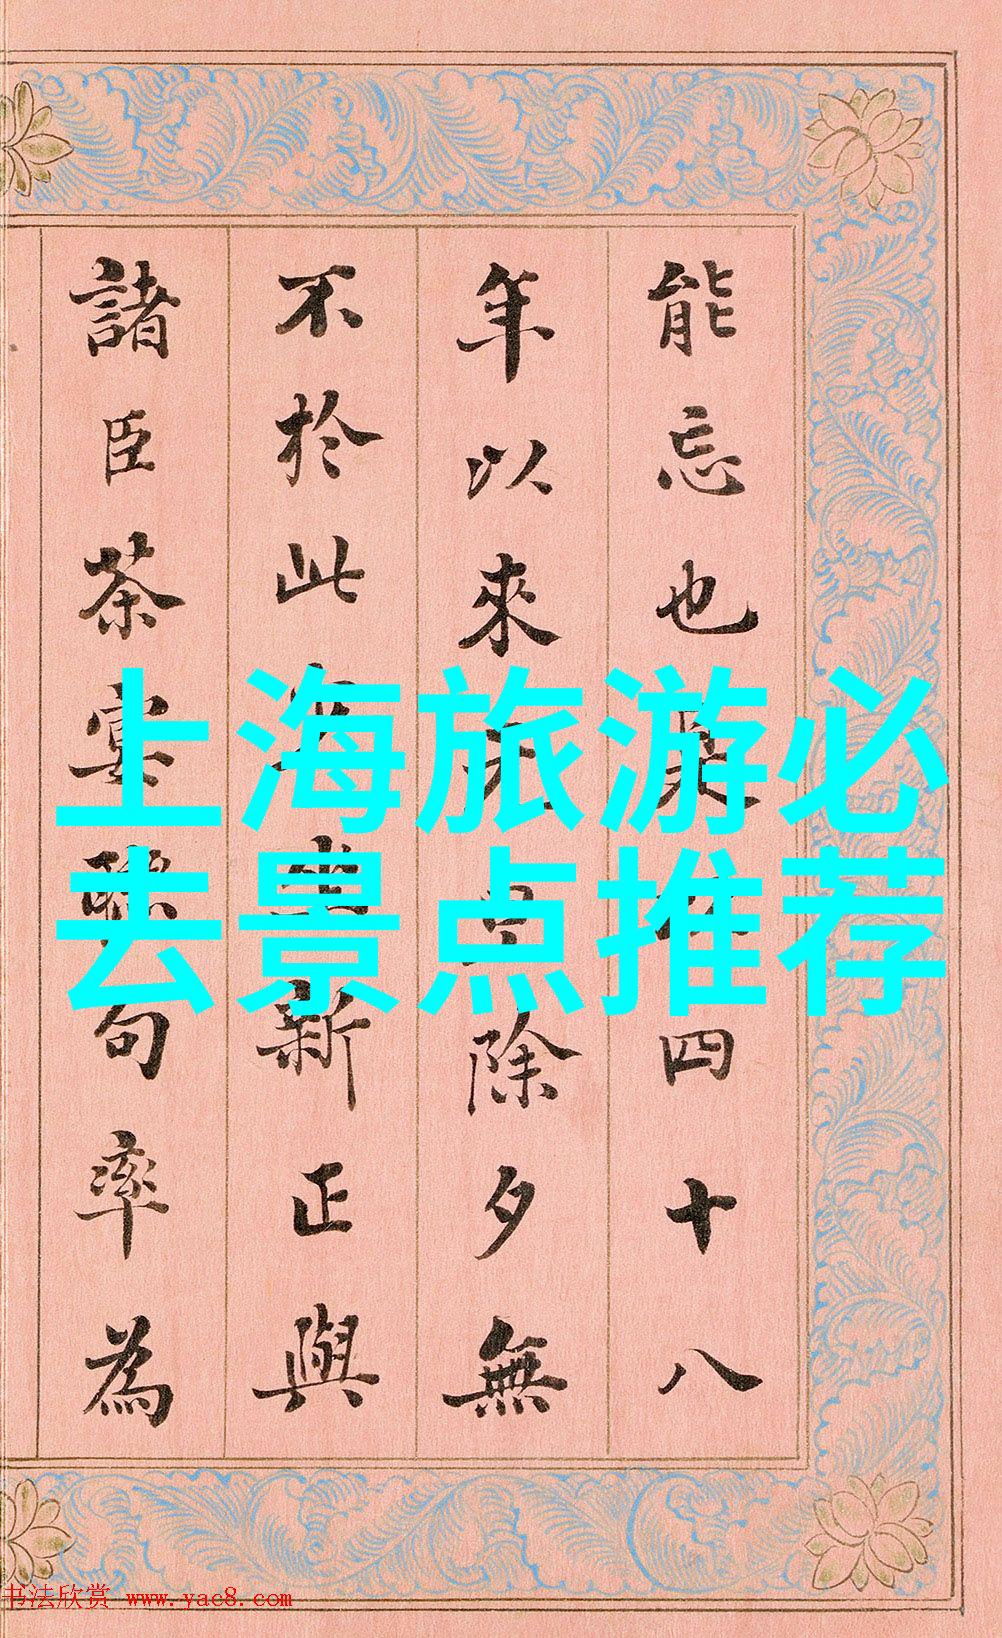 能忘也四十八
年以來元旦除夕無
不於此新正與
諸臣茶宴聯句率為
上海旅游必
去景点推荐
书法欣赏 www.yac8.com